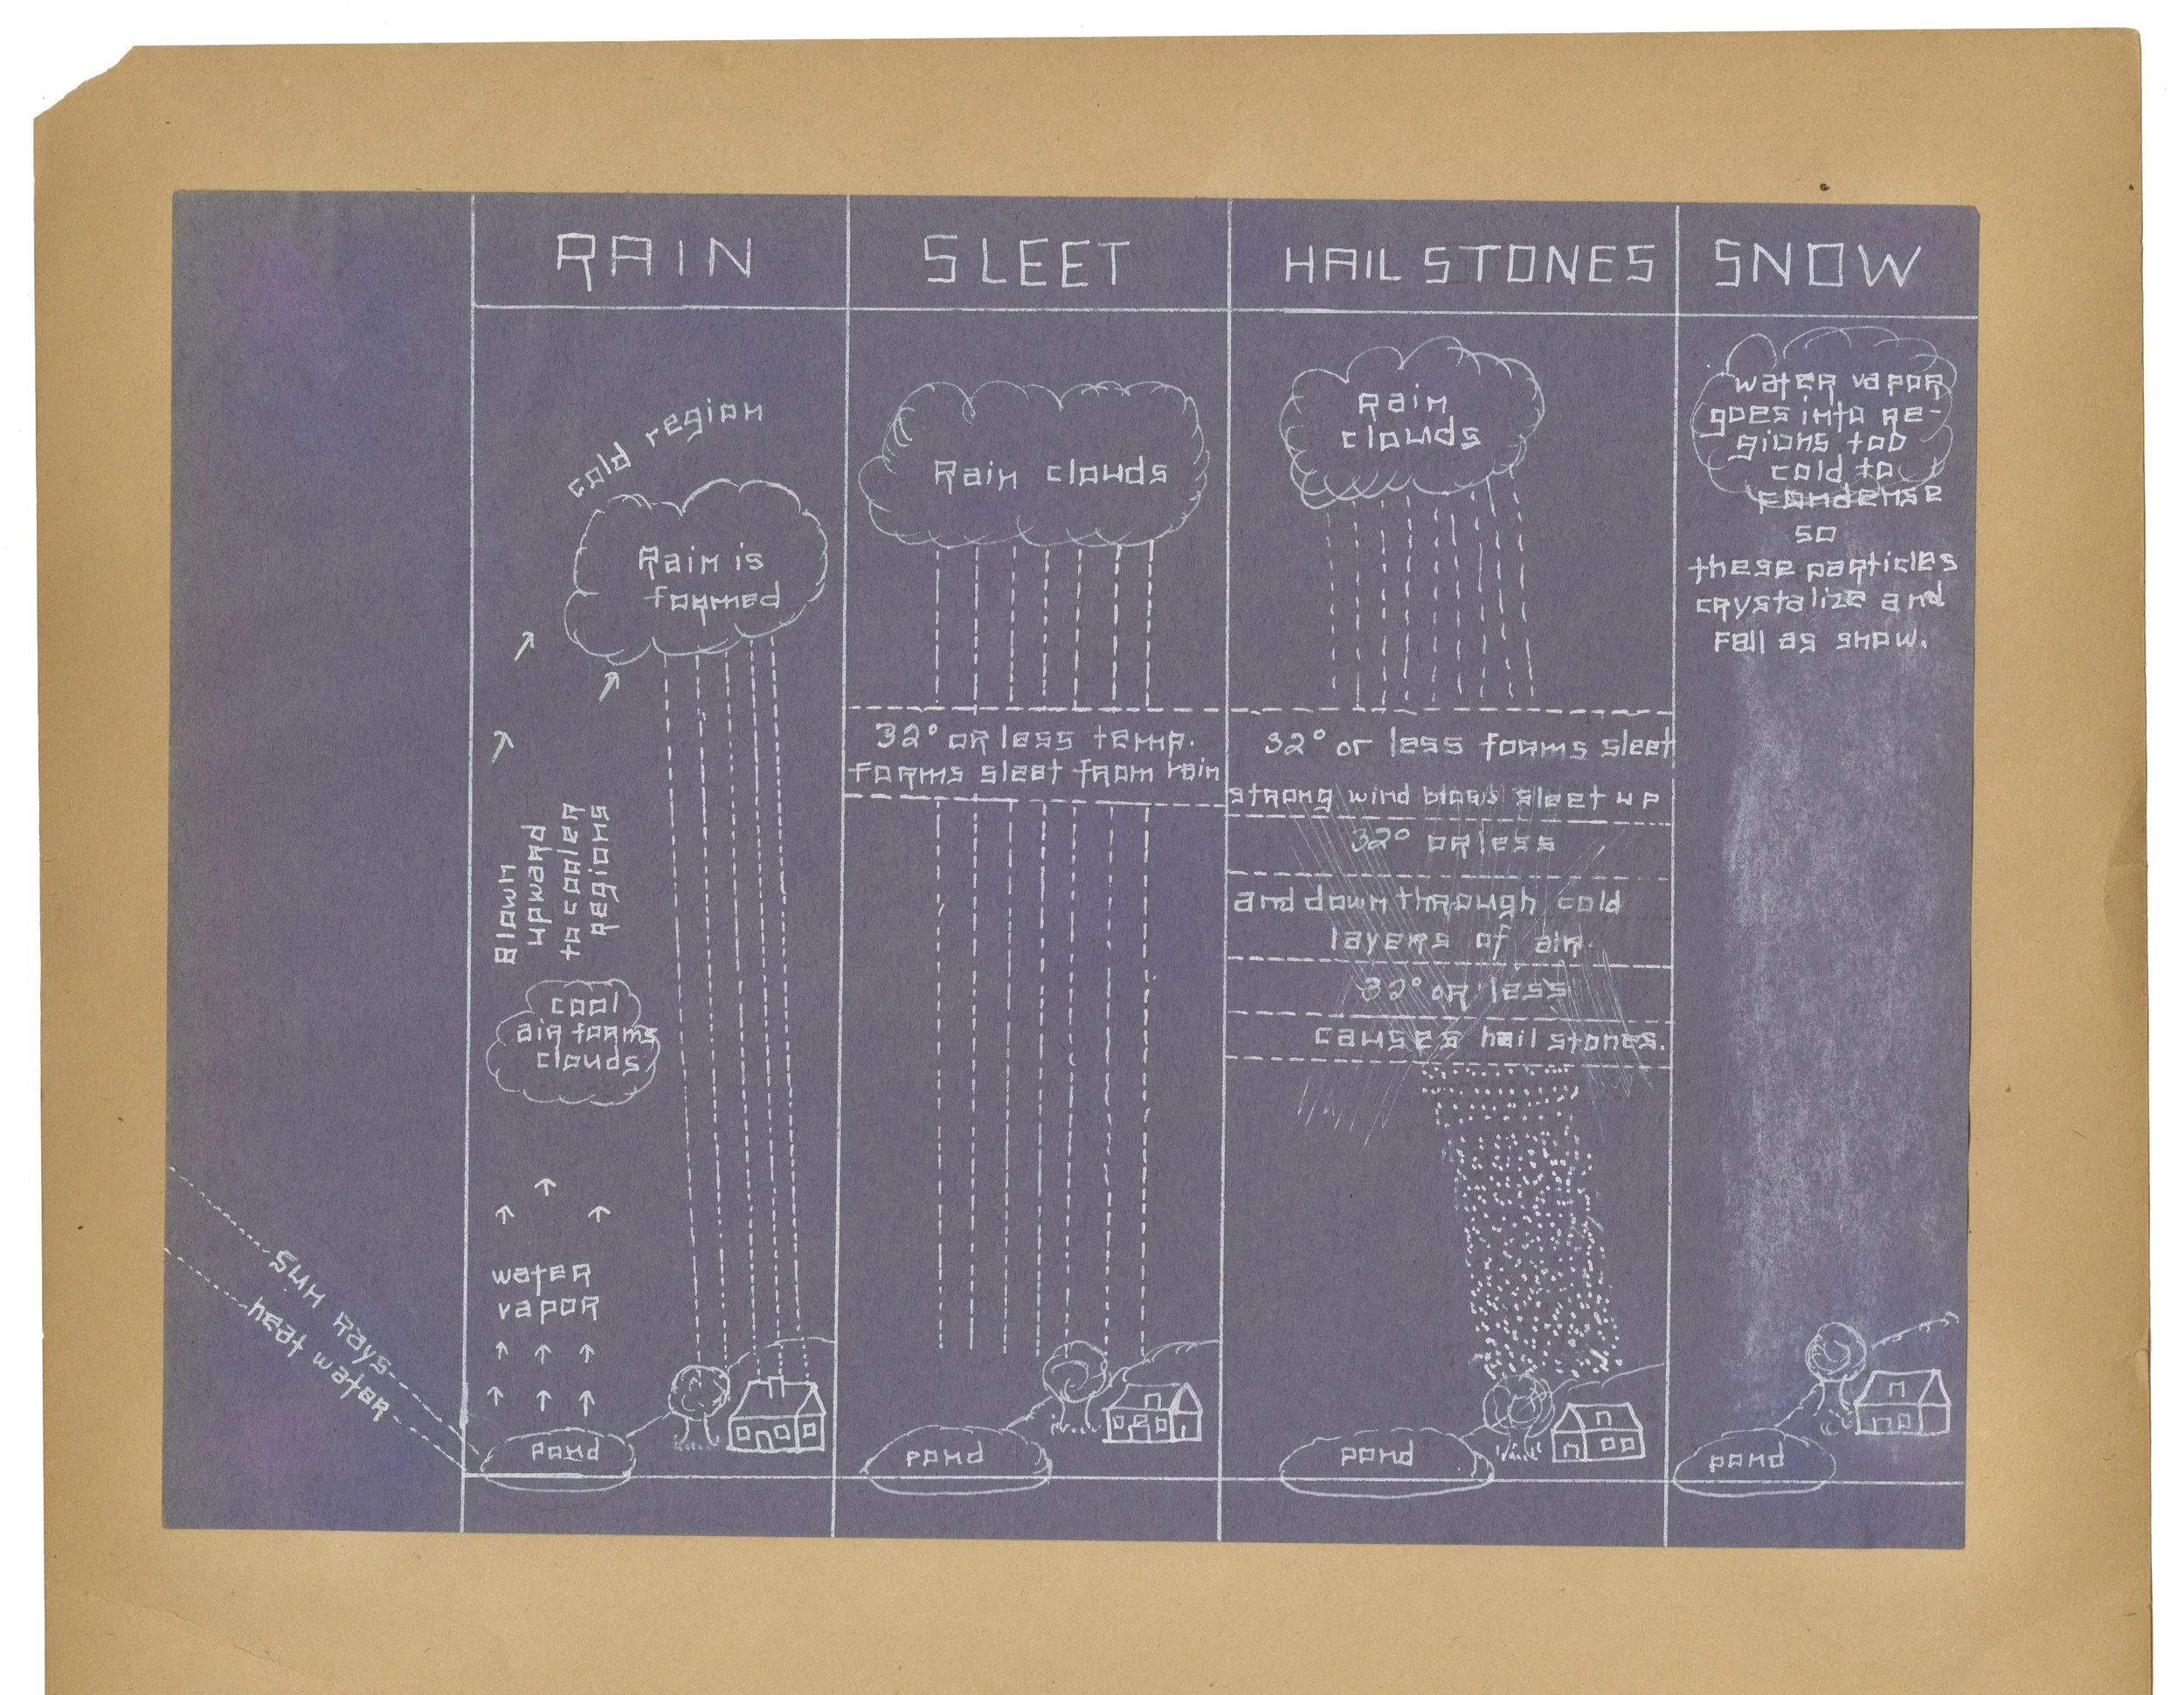 RAIN
cold region
Rain is
formed
Blown
upward
to cooler
regions
cool
air forms
clouds
water
vapor
sun rays
heat water
pond
SLEET
Rain clouds
32° or less temp.
forms sleet from rain
pond
HAIL STONES
rain
clouds
32° or less forms sleet
strong wind blows sleet up
32° or less
and down through cold
layers of air
32° or less
causes hail stones.
pond
SNOW
water vapor
goes into re-
gions too
cold to
condense
so
these particles
crystalize and
fall as snow.
pond